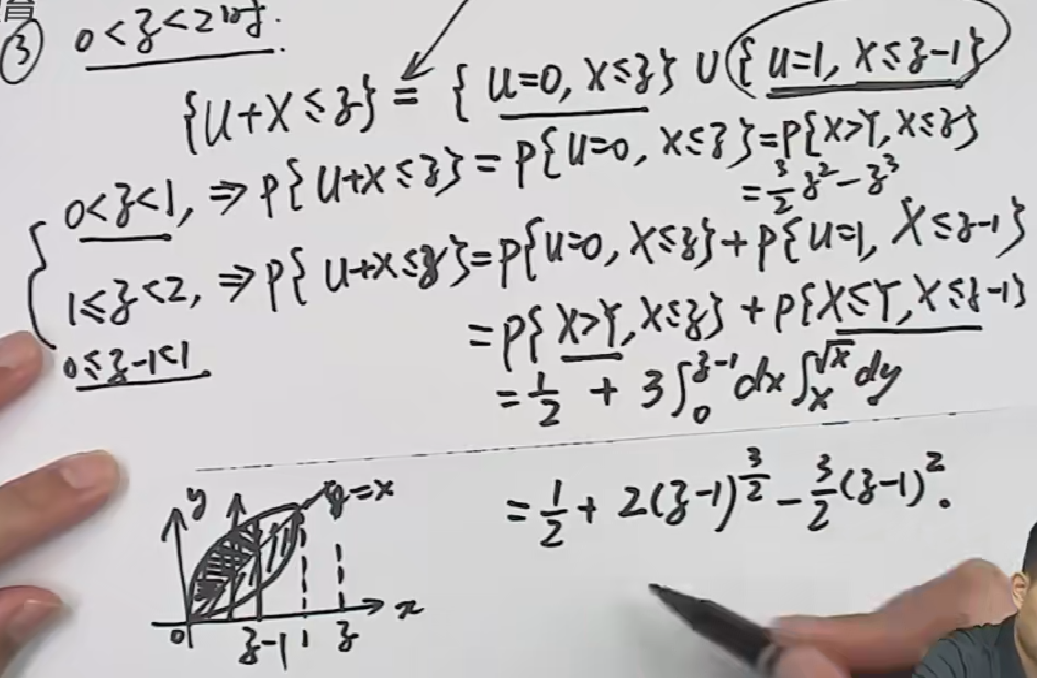 ③ 0<z<2时.
{U+X≤z} = {U=0, X≤z} ∪ {U=1, X≤z-1}
0<z<1, ⇒ P{U+X≤z} = P{U=0, X≤z} = P{X>Y, X≤z}
= 3/2 z² - z³
1≤z<2, ⇒ P{U+X≤z} = P{U=0, X≤z} + P{U=1, X≤z-1}
0≤z-1<1
= P{X>Y, X≤z} + P{X≤Y, X≤z-1}
= 1/2 + 3∫₀^{z-1} dx ∫ₓ^{√x} dy
= 1/2 + 2(z-1)^{3/2} - 3/2 (z-1)².
y
y=x
0 z-1 1 z x